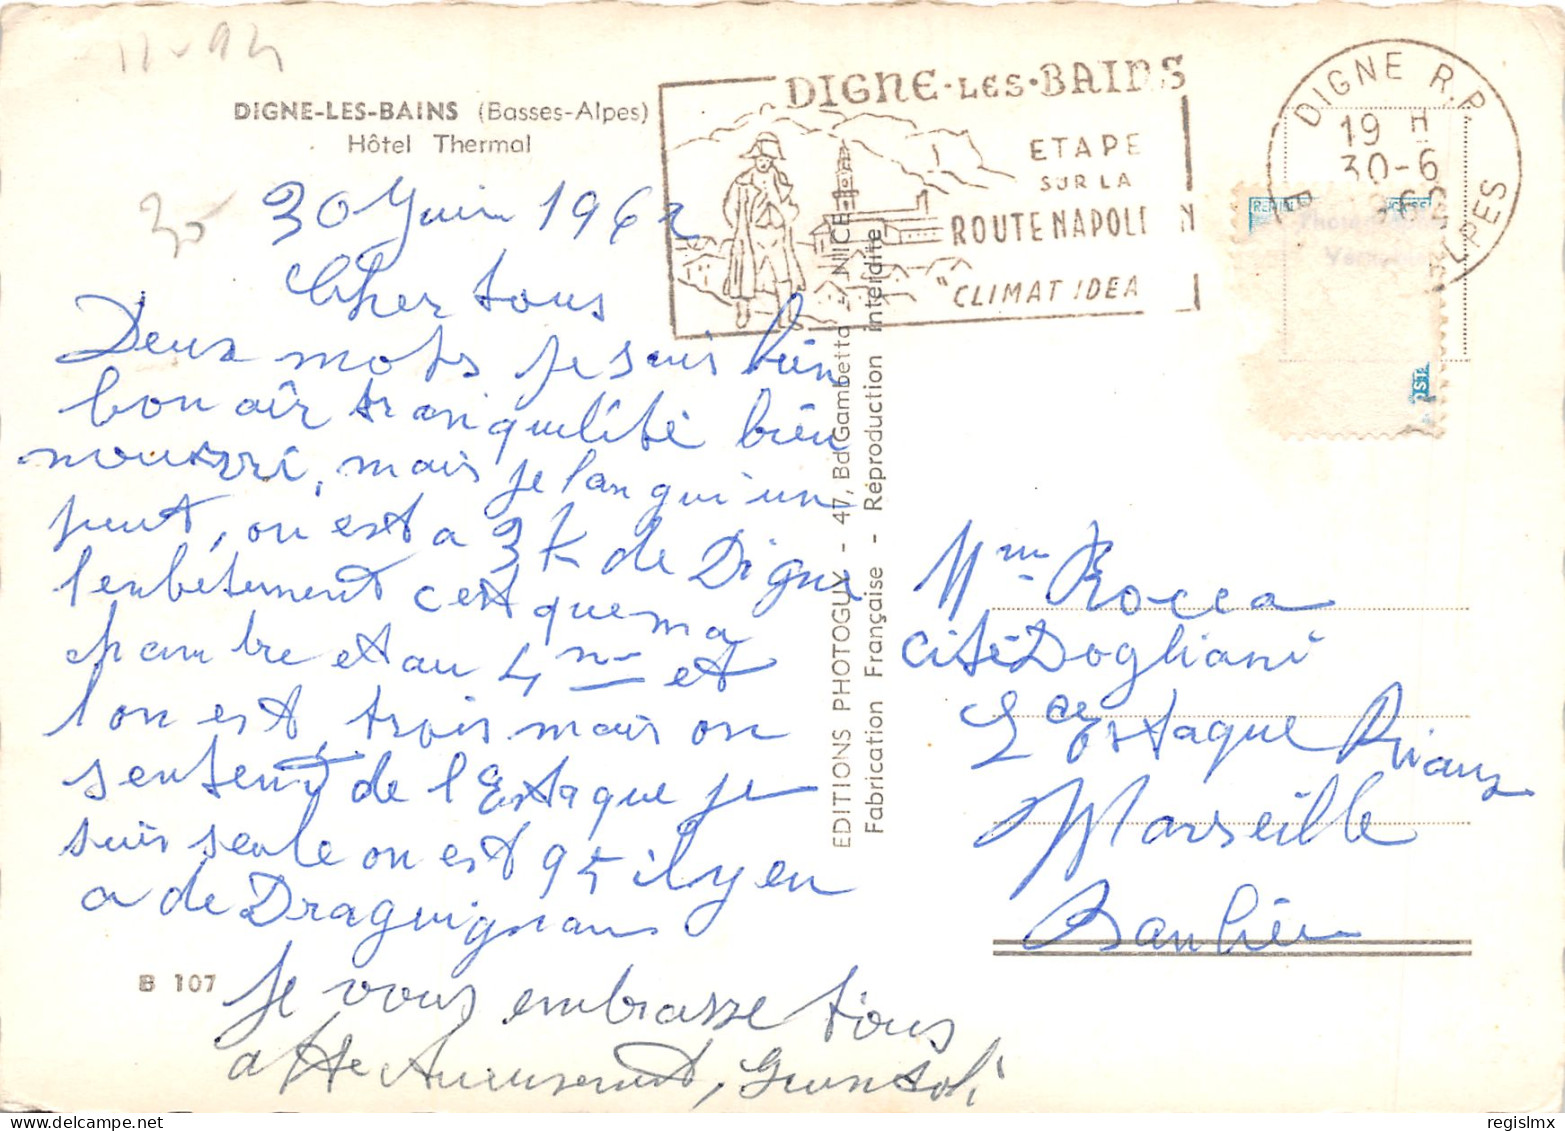 DIGNE-LES-BAINS (Basses-Alpes)
Hôtel Thermal
30
30 Juin 1962
Cher tous
Deux mots je suis bien
bon air tranquilité bien
nourri, mais je langui un
peut, on est a 3 k de Digne
l'enbêtement c'est que ma
chambre et au 4me et
l'on est trois mais on
sentent de l'Estaque je
suis seule on est 95 il y en
a de Draguignan
Je vous embrasse tous
affectueusement,
B 107
EDITIONS PHOTOGUY - 47, Bd Gambetta - NICE
Fabrication Française - Réproduction interdite
DIGNE·LES·BAINS
ETAPE
SUR LA
ROUTE NAPOLEON
"CLIMAT IDEA
DIGNE R.P.
19 H
30-6
ALPES
Mme Rocca
Cité Dogliani
L'Estaque Riaux
Marseille
Banlieue
regislmx